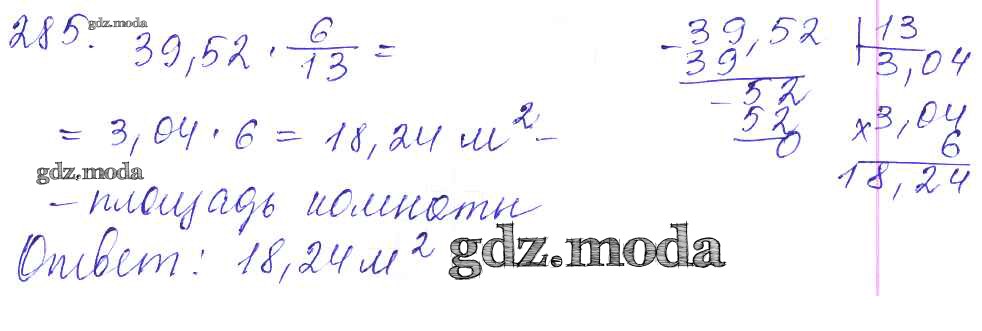 gdz.moda
285. 39,52 · 6/13 =
= 3,04 · 6 = 18,24 м² –
gdz.moda
– площадь комнаты
Ответ: 18,24 м²
gdz.moda
– 39,52 | 13
39 3,04
– 52
52
0
× 3,04
6
18,24